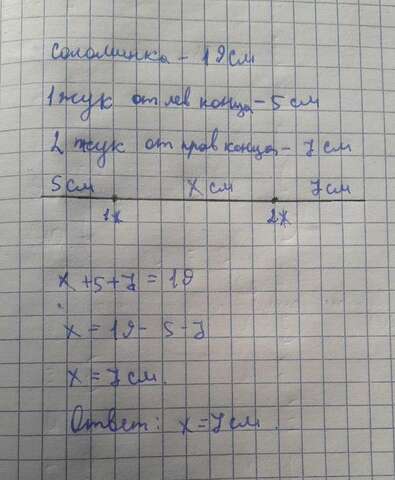 соломинка - 19 см
1 жук от лев конца - 5 см
2 жук от прав конца - 7 см
5 см x см 7 см
1ж 2ж
x + 5 + 7 = 19
x = 19 - 5 - 7
x = 7 см.
Ответ: x = 7 см.